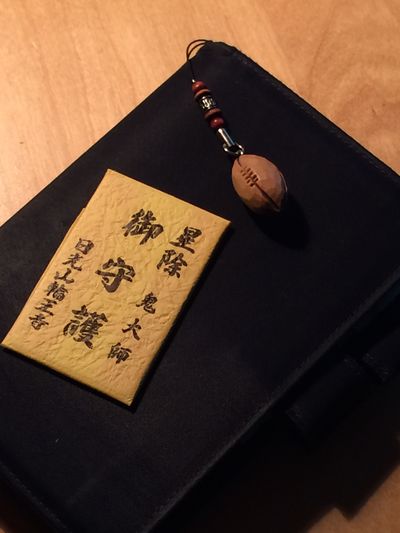 星除 鬼大師
御守護
日光山輪王寺